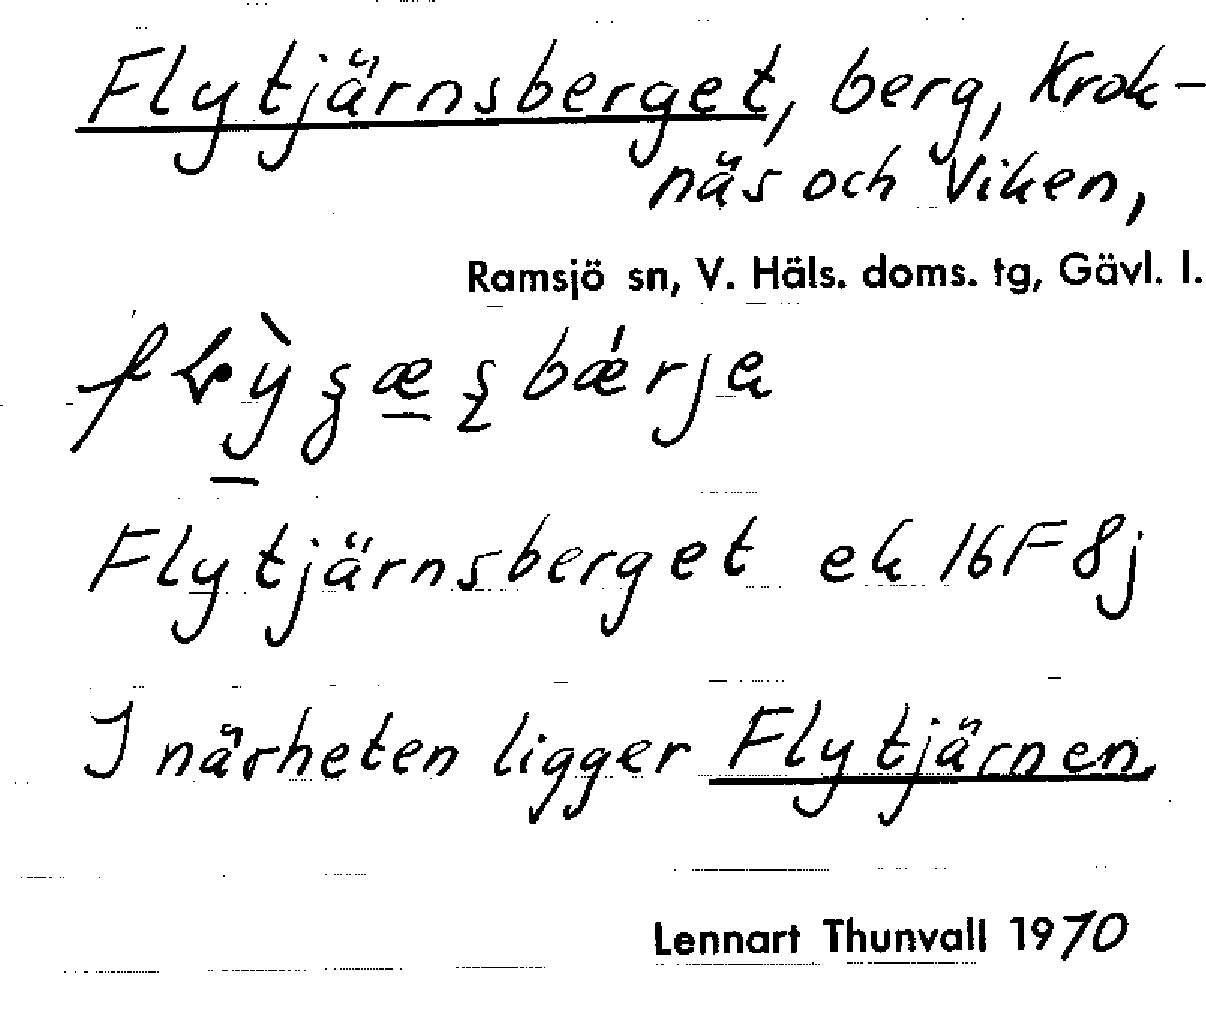 Flytjärnsberget, berg, Krok-
näs och Viken,
Ramsjö sn, V. Häls. doms. tg, Gävl. l.
Flytjärnsberget ek 16F8j
I närheten ligger Flytjärnen.
Lennart Thunvall 1970